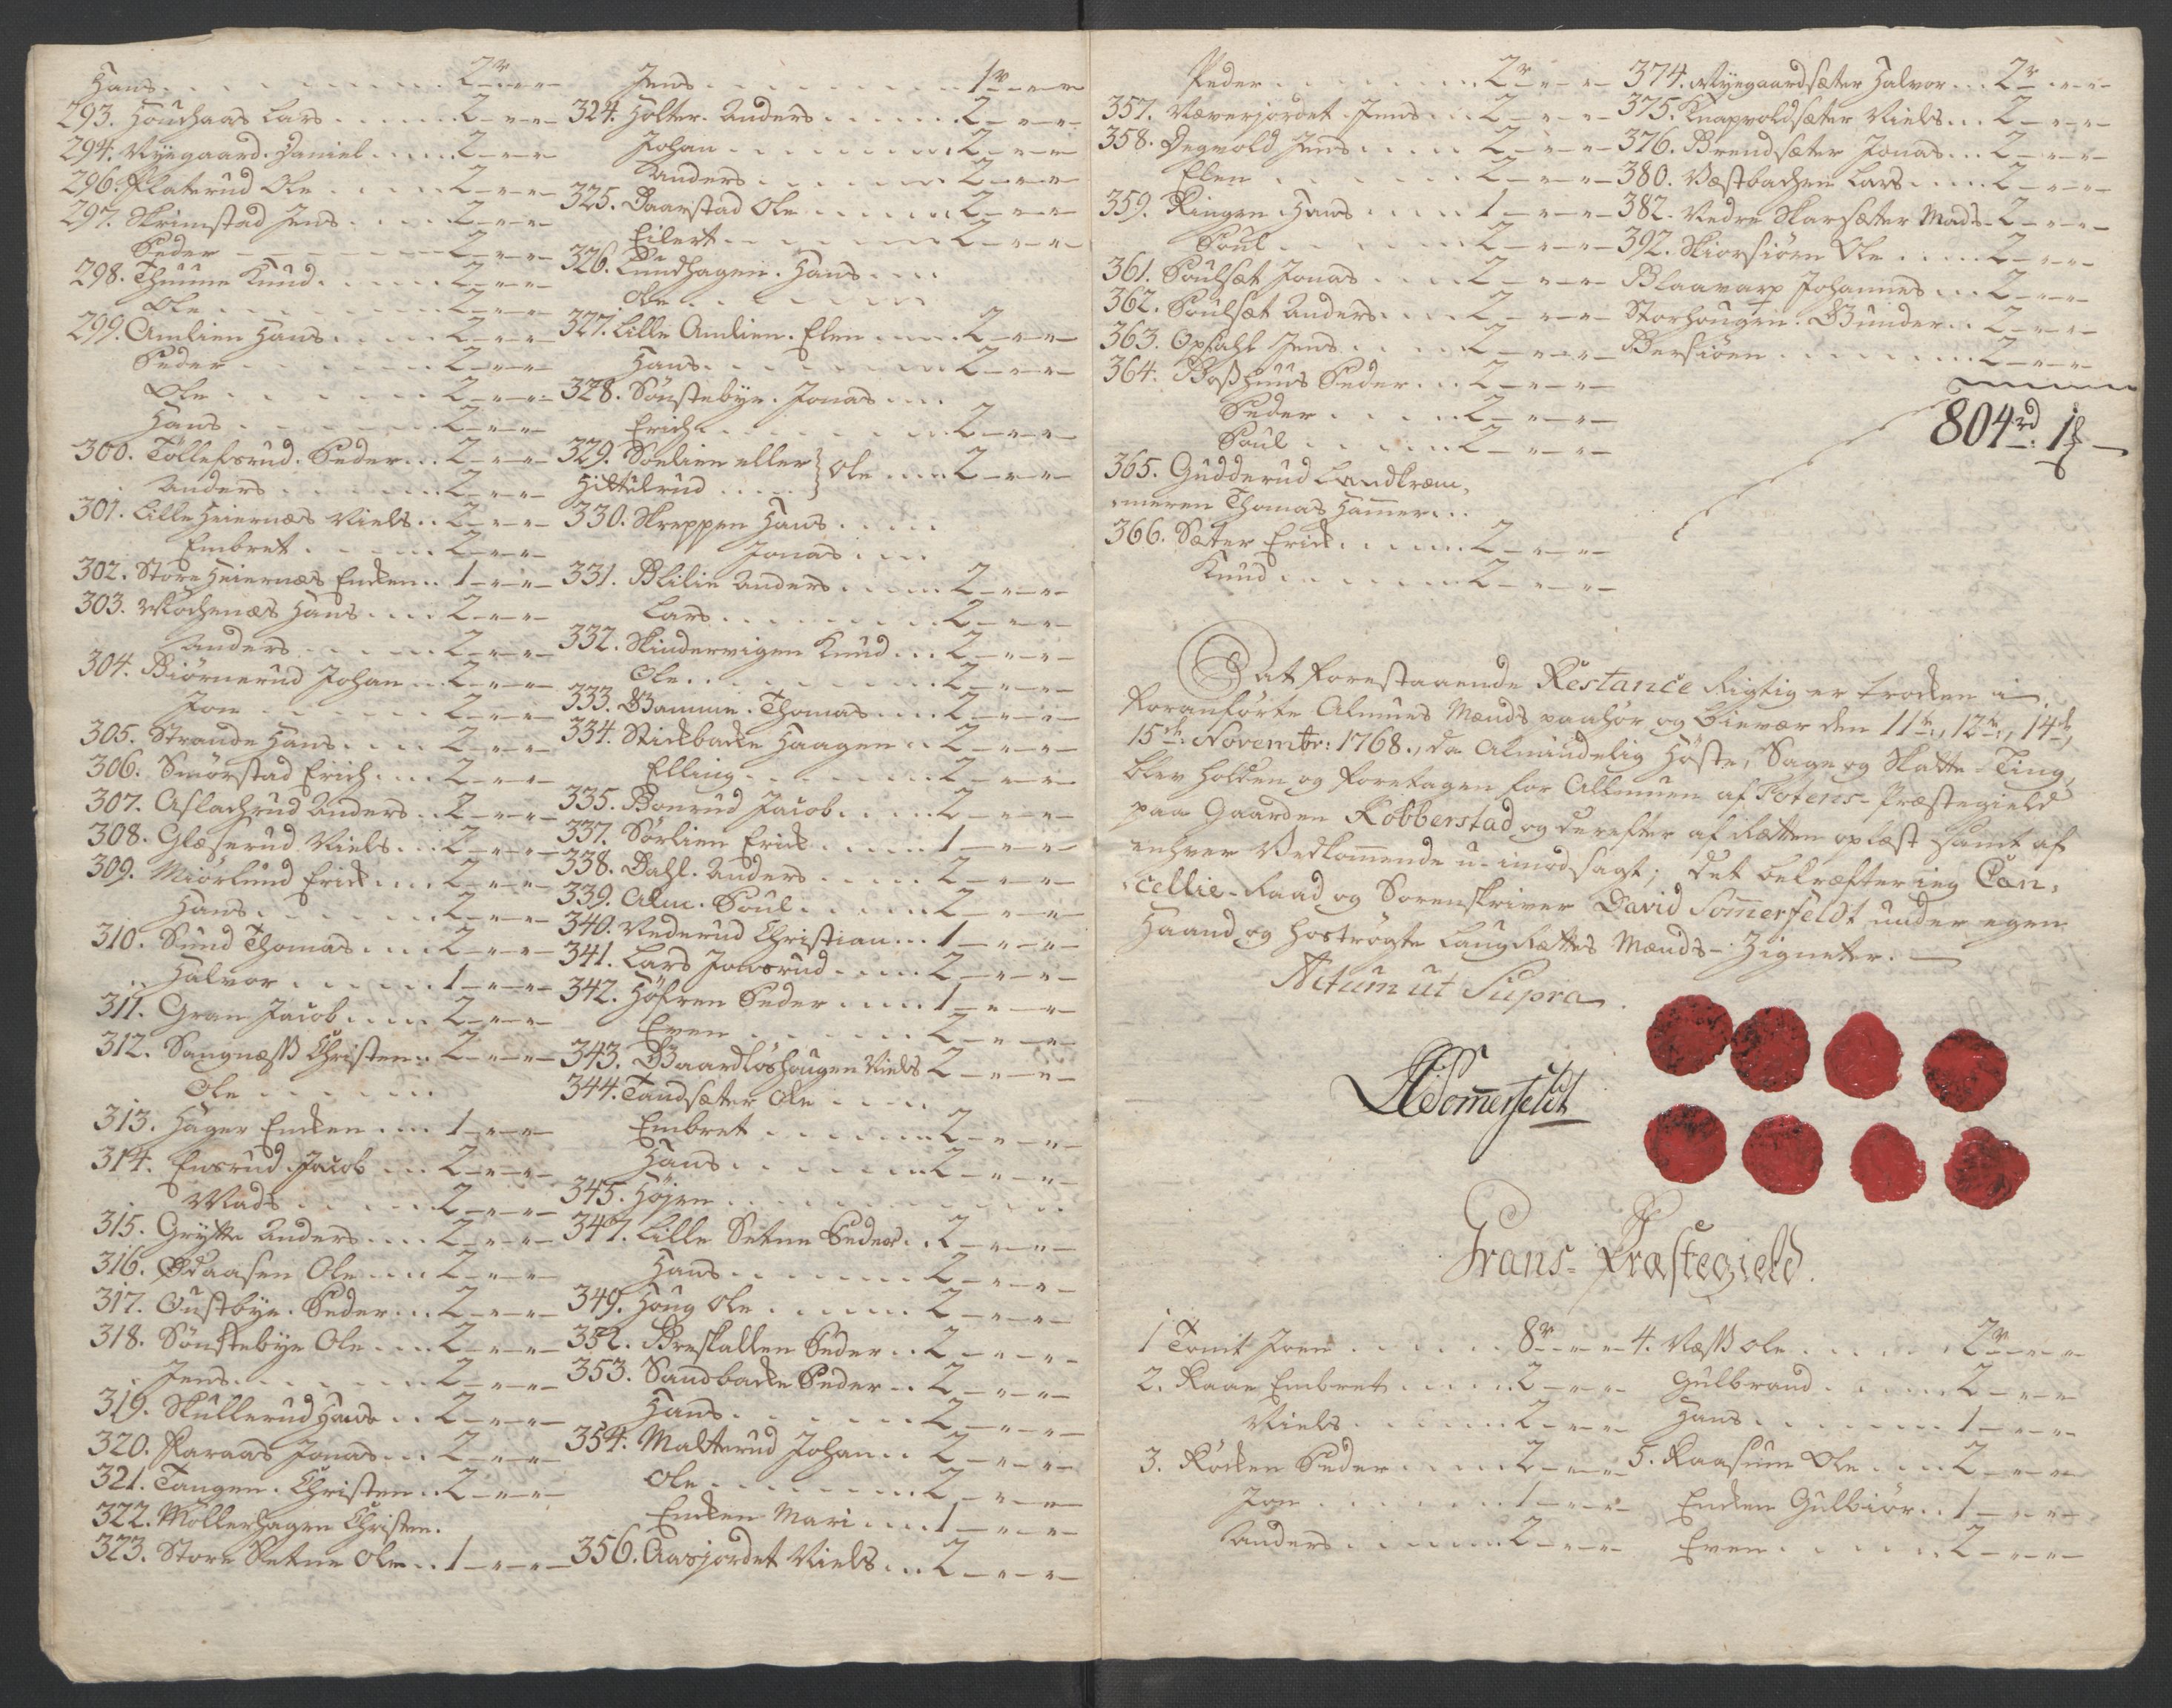 Hans . . . . . . . 2r - „ - „ -
293. Houchaas Lars . . . . 2 - „ - „ -
294. Nyegaard. Daniel . . . . 2 - „ - „ -
296. Flaterud Ole . . . . 2 - „ - „ -
297. Skrimstad Jens . . . . 2 - „ - „ -
Peder . . . . 2 - „ - „ -
298. Thune Knud . . . . 2 - „ - „ -
Ole . . . . 2 - „ - „ -
299. Amlien Hans . . . . 2 - „ - „ -
Peder . . . . 2 - „ - „ -
Ole . . . . 2 - „ - „ -
Hans . . . . 2 - „ - „ -
300. Töllefsrud. Peder . . . 2 - „ - „ -
Anders . . . . 2 - „ - „ -
301. Lille Heiernæs Niels . . 2 - „ - „ -
Embret . . . . 2 - „ - „ -
302. Store Heiernæs Encken . . 1 - „ - „ -
303. Mochenæs Hans . . . . 2 - „ - „ -
Anders . . . . 2 - „ - „ -
304. Biörnerud Johan . . . 2 - „ - „ -
Jon . . . . 2 - „ - „ -
305. Strande Hans . . . . 2 - „ - „ -
306. Smörstad Erich . . . . 2 - „ - „ -
307. Aslachrud Anders . . 2 - „ - „ -
308. Glæserud Niels . . . 2 - „ - „ -
309. Miörlund Erick . . . . 2 - „ - „ -
Hans . . . . 2 - „ - „ -
310. Sund Thomas . . . . 2 - „ - „ -
Halvor . . . . 1 - „ - „ -
311. Gran Jacob . . . . 2 - „ - „ -
312. Sangnæss Christen . . 2 - „ - „ -
Ole . . . . . .
313. Hager Encken . . . 1 - „ - „ -
314. Ensrud. Jacob . . . 2 - „ - „ -
Mads . . . . 2 - „ - „ -
315. Grytte Anders . . . . 2 - „ - „ -
316. Ødaasen Ole . . . . 2 - „ - „ -
317. Oustbye. Peder . . . 2 - „ - „ -
318. Sönstebye Ole . . . . 2 - „ - „ -
Jens . . . . 2 - „ - „ -
319. Skullerud Hans . . 2 - „ - „ -
320. Karaas Jonas . . . 2 - „ - „ -
321. Tangen. Christen . . 2 - „ - „ -
322. Möllerhagen Christen.
323. Store Setne Ole . . 1 - „ - „ -
Jens . . . . . . . 1r - „ - „ -
324. Holter. Anders . . . . 2 - „ - „ -
Johan . . . . 2 - „ - „ -
Anders . . . . 2 - „ - „ -
325. Daarstad Ole . . . . 2 - „ - „ -
Eilert . . . . 2 - „ - „ -
326. Lundhagen. Hans . . . .
Ole . . . . . .
327. Lille Amlien. Elen . . . . 2 - „ - „ -
Hans . . . . 2 - „ - „ -
328. Sönstebye. Jonas . . . .
Erich . . . . 2 - „ - „ -
329. Soelien eller } Ole . . . . 2 - „ - „ -
Hittulrud . . . .
330. Skreppen Hans . . . .
Jonas . . . .
331. Blilie Anders . . . . 2 - „ - „ -
Lars . . . . 2 - „ - „ -
332. Skindervigen Knud . . . 2 - „ - „ -
Ole . . . . 2 - „ - „ -
333. Gamme. Thomas . . . . 2 - „ - „ -
334. Stickbacke Haagen . . 2 - „ - „ -
Elling . . . . 2 - „ - „ -
335. Bonrud Jacob . . . . 2 - „ - „ -
337. Sörlien Erick . . . . 1 - „ - „ -
338. Dahl. Anders . . . . 2 - „ - „ -
339. Alm. Poul . . . . 2 - „ - „ -
340. Nederud Christian . . . 1 - „ - „ -
341. Lars Jonsrud . . . . 2 - „ - „ -
342. Höfren Peder . . . . 1 - „ - „ -
Even . . . . 2 - „ - „ -
343. Gaardløshougen Niels 2 - „ - „ -
344. Tandsæter Ole . . . .
Embret . . . . 2 - „ - „ -
Hans . . . . 2 - „ - „ -
345. Höjen . . . . . . . .
347. Lille Setne Peder . . 2 - „ - „ -
Hans . . . . 2 - „ - „ -
349. Houg Ole . . . . 2 - „ - „ -
352. Breskallen Peder . . 2 - „ - „ -
353. Sandbacke Peder . . 2 - „ - „ -
Hans . . . . 2 - „ - „ -
354. Malterud Johan . . 2 - „ - „ -
Ole . . . . 2 - „ - „ -
Encken Mari . . . . 1 - „ - „ -
356. Aasjordet Niels . . . 2 - „ - „ -
Peder . . . . 2r - „ - „ -
357. Næverjordet. Jens . . . 2 - „ - „ -
358. Degvold Jens . . . . 2 - „ - „ -
Elen . . . . 2 - „ - „ -
359. Ringen. Hans . . . . 1 - „ - „ -
Poul . . . . 2 - „ - „ -
361. Poulsæt Jonas . . . . 2 - „ - „ -
362. Poulsæt Anders . . . . 2 - „ - „ -
363. Opsahl Jens . . . . 2 - „ - „ -
364. Bosshuus Peder . . . 2 - „ - „ -
Peder . . . . 2 - „ - „ -
Poul . . . . 2 - „ - „ -
365. Gudderud Landkræm-
meren Thomas Hammer . . .
366. Sæter Erick . . . . 2 - „ - „ -
Knud . . . . 2 - „ - „ -
374. Nyegaardsæter Halvor . . . 2r - „ - „ -
375. Knapvoldsæter Niels . . . 2 - „ - „ -
376. Brendsæter Jonas . . . 2 - „ - „ -
380. Væstbachen Lars . . . . 2 - „ - „ -
382. Nedre Skarsæter Mads - 2 - „ - „ -
392. Skiorsiörn Ole . . . . 2 - „ - „ -
Blaavarp Johannes . . . 2 - „ - „ -
Storhougen. Gunder . . 2 - „ - „ -
Bersiöen . . . . . . 2 - „ - „ -
804rd. 1
At forestaaende Restance Rigtig er trocken i
foranförte Almues Mænds paahör og bievær den 11te, 12te, 14de,
15de Novembr: 1768., da Almindelig Höste, Sage og Skatte-Ting
blev holden og foretagen for Allmuen af Totens-Præstegield
paa Gaarden Robberstad og derefter af Retten oplæst samt af
enhver Vedkommende u-imodsagt; det bekræfter ieg Can-
cellie-Raad og Sorenskriver David Sommerfeldt under egen
Haand og hoströgte Laug Rættes Mænds-Zigneter. —
Actum ut Supra.
DSommerfeldt
Grans-Præstegield.
1 Tomt Joen . . . . 8r - „ - „ -
2. Raae Embret . . . . 2 - „ - „ -
Niels . . . . 2 - „ - „ -
3. Röcken Peder . . . . 2 - „ - „ -
Jon . . . . 1 - „ - „ -
Anders . . . . 2 - „ - „ -
4. Næss Ole . . . . 2r - „ - „ -
Gulbrand . . . . 2 - „ - „ -
Hans . . . . 1 - „ - „ -
5. Raasum Ole . . . . 2 - „ - „ -
Encken Gulbiör . . 1 - „ - „ -
Even . . . . 2 - „ - „ -